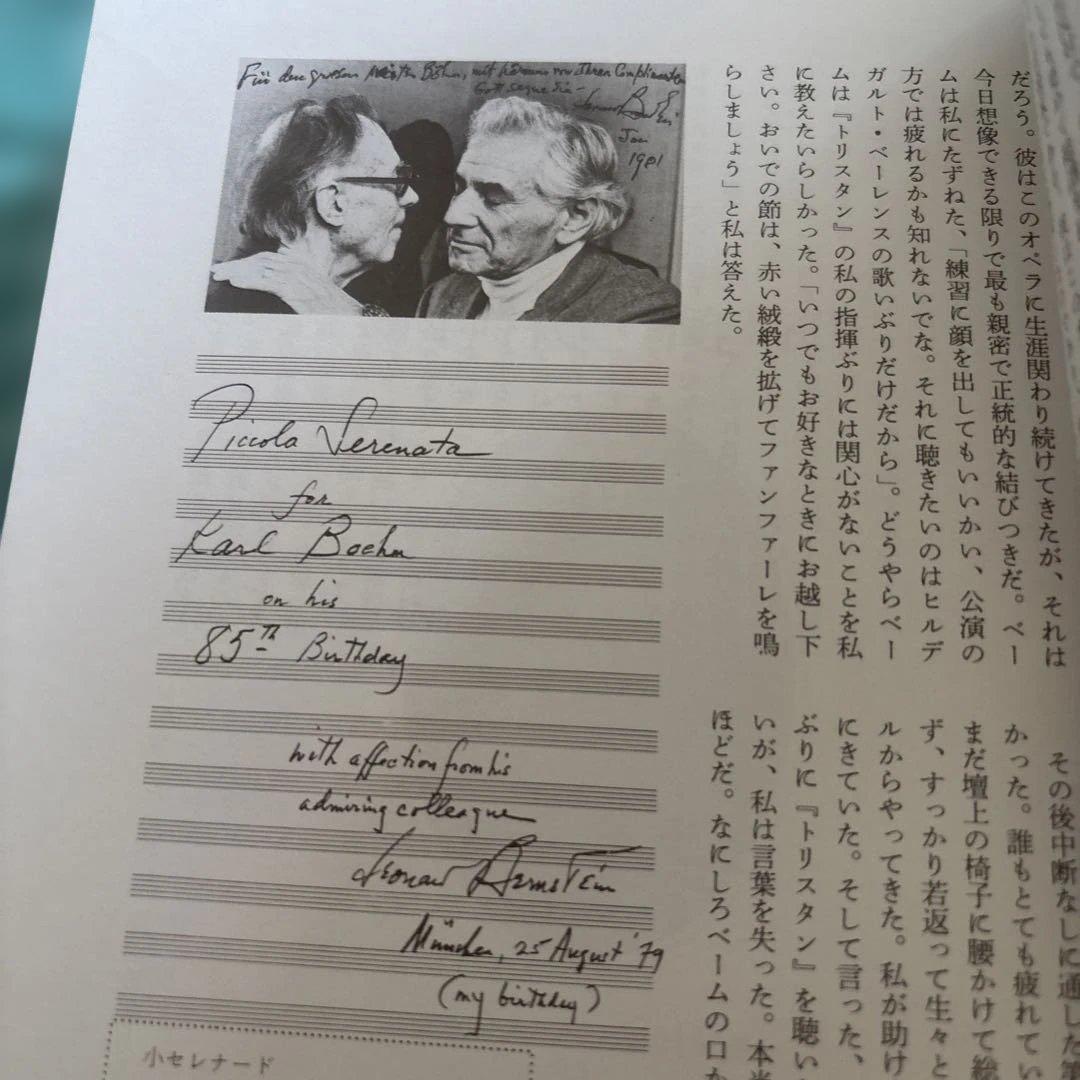 Für den großen Meister Böhm, mit
Jan
1981
Piccola Serenata
for
Karl Boehm
on his
85TH Birthday
with affection from his
admiring colleague
Leonard Bernstein
München, 25 August '79
(my birthday)
小セレナード
だろう。彼はこのオペラに生涯関わり続けてきたが、それは
今日想像できる限りで最も親密で正統的な結びつきだ。ベー
ムは私にたずねた、「練習に顔を出してもいいかい、公演の
方では疲れるかも知れないでな。それに聴きたいのはヒルデ
ガルト・ベーレンスの歌いぶりだけだから」。どうやらベー
ムは『トリスタン』の私の指揮ぶりには関心がないことを私
に教えたいらしかった。「いつでもお好きなときにお越し下
さい。おいでの節は、赤い絨緞を拡げてファンファーレを鳴
らしましょう」と私は答えた。
その後中断なしに通した
かった。誰もとても疲れてい
まだ壇上の椅子に腰かけて
ず、すっかり若返って生々と
ルからやってきた。私が助け
にきていた。そして言った、
ぶりに『トリスタン』を聴い
いが、私は言葉を失った。本当
ほどだ。なにしろベームの口か